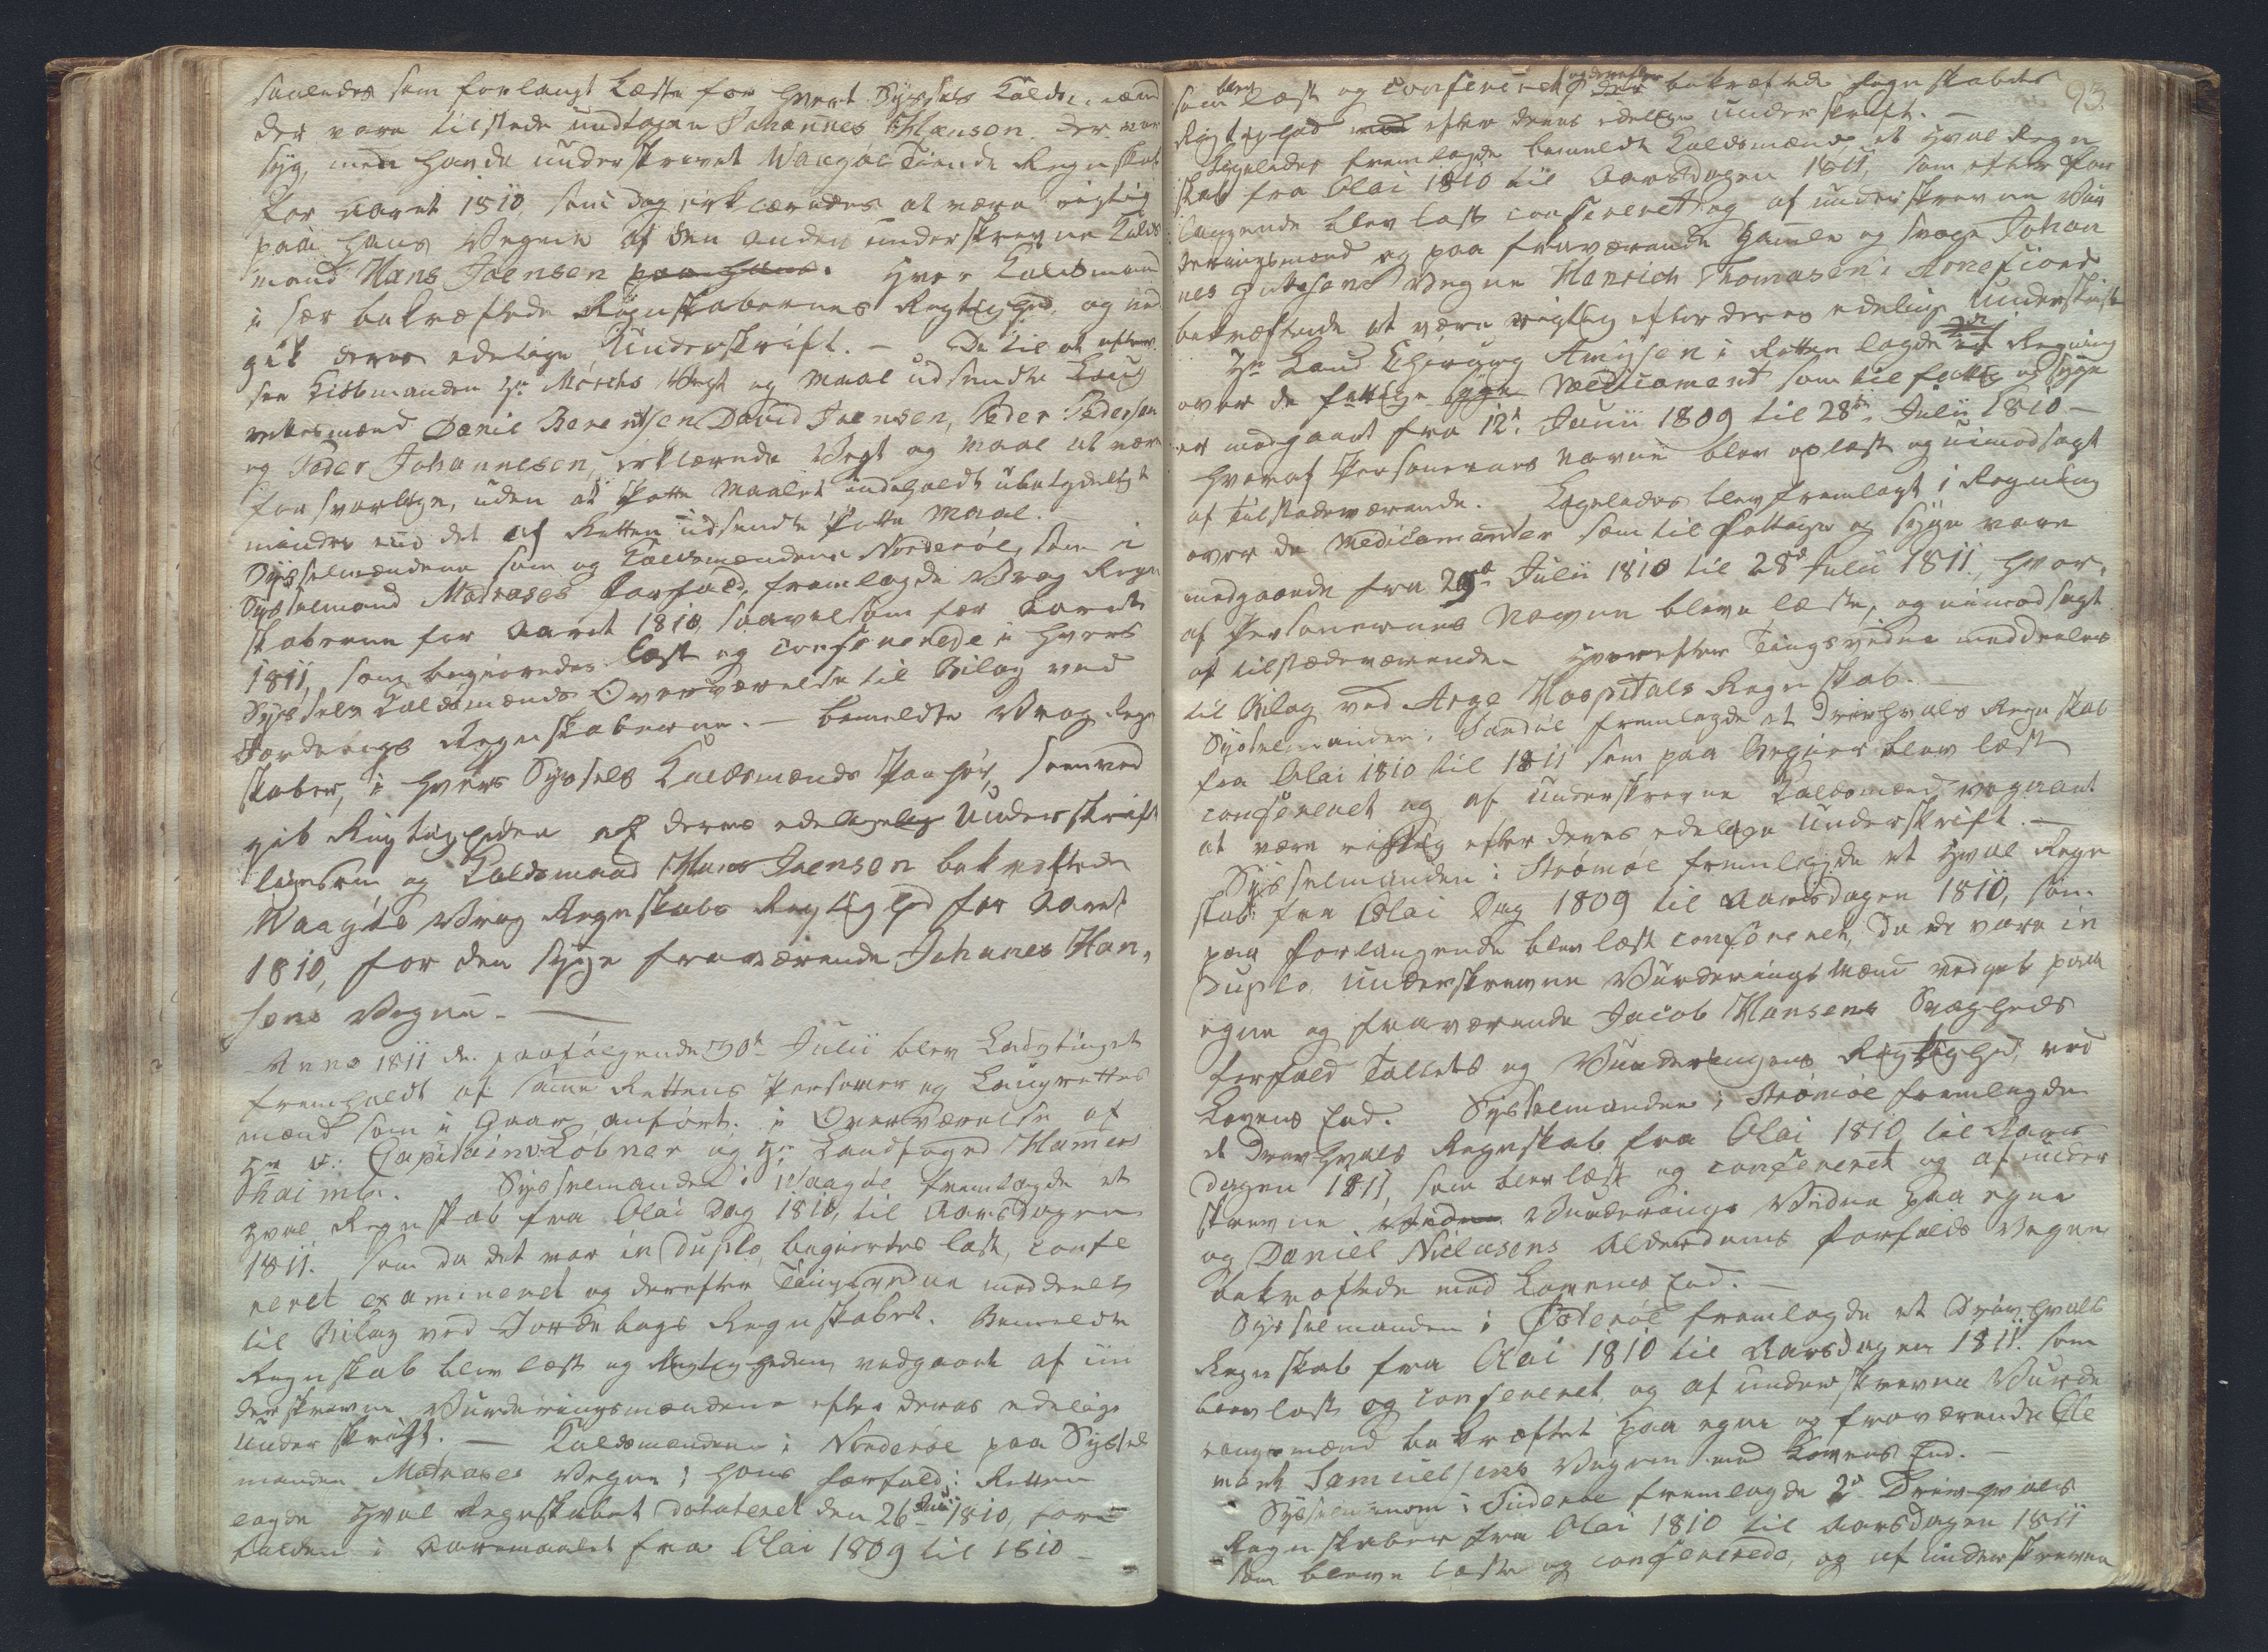 saaledes som forlangt læste for hvert Syssels Kalds mænd
der vare tilstede undtagen Johannes Hanson der var
syg, men havde underskrevet Waagøe Tiende Regnskab
for aaret 1810, som dog erklæredes at være rigtig
paa hans Vegne af den anden underskrevne Kalds
mand Hans Joensen paa hans. Hver Kaldsmand
i sær bekræftede Regnskabernes Rigtighed, og ved
gik deres edelige Underskrift. — De til at efter
see Kiøbmanden Hr Mørchs Vegt og Maal udsendte Laug
rettesmænd Daniel Berentsen, David Joensen, Peder Pedersen
og Peder Johannesen, erklærede Vegt og Maal at være
forsvarlige, uden at Potte Maalet indeholdt ubetydeligt
mindre end det af Retten udsendte Potte Maal.
Sysselmændene som og Kaldsmændene Norderøe, som i
Sysselmand Matrases Forfald, fremlagde Vrag Regn
skaberne for Aaret 1810, saavelsom for Aaret
1811, som begieredes læst og confererede i hvers
Syssels Kaldsmænds Overværelse til Bilag ved
Jordebogs Regnskaberne. — bemeldte Vrag Regn
skaber, i hvers Syssels Kaldsmænds Paahør, som ved
gik Rigtigheden af deres edelige Underskrift
ligesom og Kaldsmand Hans Joensen bekræftede
Waagøes Vrag Regnskabs Rigtighed for Aaret
1810, for den syge fraværende Johanes Han-
sens Vegne. —
Anno 1811 den paafølgende 30te Julii blev Laugtinget
fremholdt af samme Rettens Personer og Laugrettes
mænd som i Gaar anført. i Overværelse af
Hr v: Capitain Løbner og Hr Landfoged Hamers
haimb. Sysselmanden i Waagøe fremlagde et
Hval Regnskab fra Olai Dag 1810, til Aarsdagen
1811. som da det var in Duplo, begiertes læst, confe
reret examineret og derefter Tingsvidne meddeelt
til Bilag ved Jordebogs Regnskabet. Bemeldte
Regnskab blev læst og Rigtigheden vedgaaet af un
derskrevne Vurderingsmændene efter deres edelige
Underskrift. — Kaldsmændene i Norderøe paa Syssel
manden Matrases Vegne i hans Forfald i Retten
lagde Hval Regnskabet datateret den 26 Junii 1810, for
falden i Aaremaalet fra Olai 1809 til 1810 —
93.
som blev læst og confereret og derefter bekræftede Regnskabets
Rigtighed efter deres edelige Underskrift. —
Ligeledes fremlagde bemeldte Kaldsmænd et Hval Regn
skab fra Olai 1810 til Aarsdagen 1811, som efter For
langende blev læst confereret og af underskrevne Vur
deringsmænd og paa fraværende gamle og svage Johan
nes Vegne Henrich Thomasen i Arnefiord
bekræftede at være rigtig efter deres edelige Underskrift
Hr Land Chirurg Amysen i Retten lagde en Regning
over de fattige syge Medicament som til fattig og syge
er medgaaet fra 12te Junii 1809 til 28de Julii 1810 —
hvoraf Personernes Navne blev oplæst og uimodsagt
af tilstædeværende. Ligeledes blev fremlagt i Regning
over de Medicamenter som til Fattige og syge vare
medgaaede fra 29de Julii 1810 til 28de Julii 1811, hvor-
af Personernes Navne bleve læste, og uimodsagt
af tilstædeværende. Hvorefter Tingsvidne meddeeles
til Bilag ved Arge Hospitals Regnskab. —
Sysselmanden i Sandøe fremlagde et Drivhvals Regnskab
fra Olai 1810 til 1811 som paa Begier blev læst
confereret og af underskrevne Kaldsmænd vedgaaet
at være rigtig efter deres edelige Underskrift. —
Sysselmanden i Strømøe fremlagde et Hval Regn
skab fra Olai Dag 1809 til Aarsdagen 1810, som
paa Forlangende blev læst confereret, da de vare in
Duplo, underskrevne Vurderings Mænd vedgik paa
egne og fraværende Jacob Hansens Svagheds
Forfald Tallets og Vurderingens Rigtighed, ved
Lovens Eed. Sysselmanden i Strømøe fremlagde
et Drivhvals Regnskab fra Olai 1810 til Aars
dagen 1811, som blev læst og confereret og af under
skrevne Vidner Vurderings Vidner paa egne
og Daniel Niclasens Alderdoms Forfalds Vegne
bekræftede med Lovens Eed. —
Sysselmanden i Østerøe fremlagde et Drivhvals
Regnskab fra Olai 1810 til Aarsdagen 1811. som
blev læst og confereret, og af underskrevne Vurde
ringsmænd bekræftet paa egne og fraværende Cle
ment Samuelsens Vegne med Lovens Eed. —
Sysselmanden i Suderøe fremlagde 2de Drivhvals
Regnskaber fra Olai 1810 til Aarsdagen 1811
som bleve læste og confererede, og af underskrevne